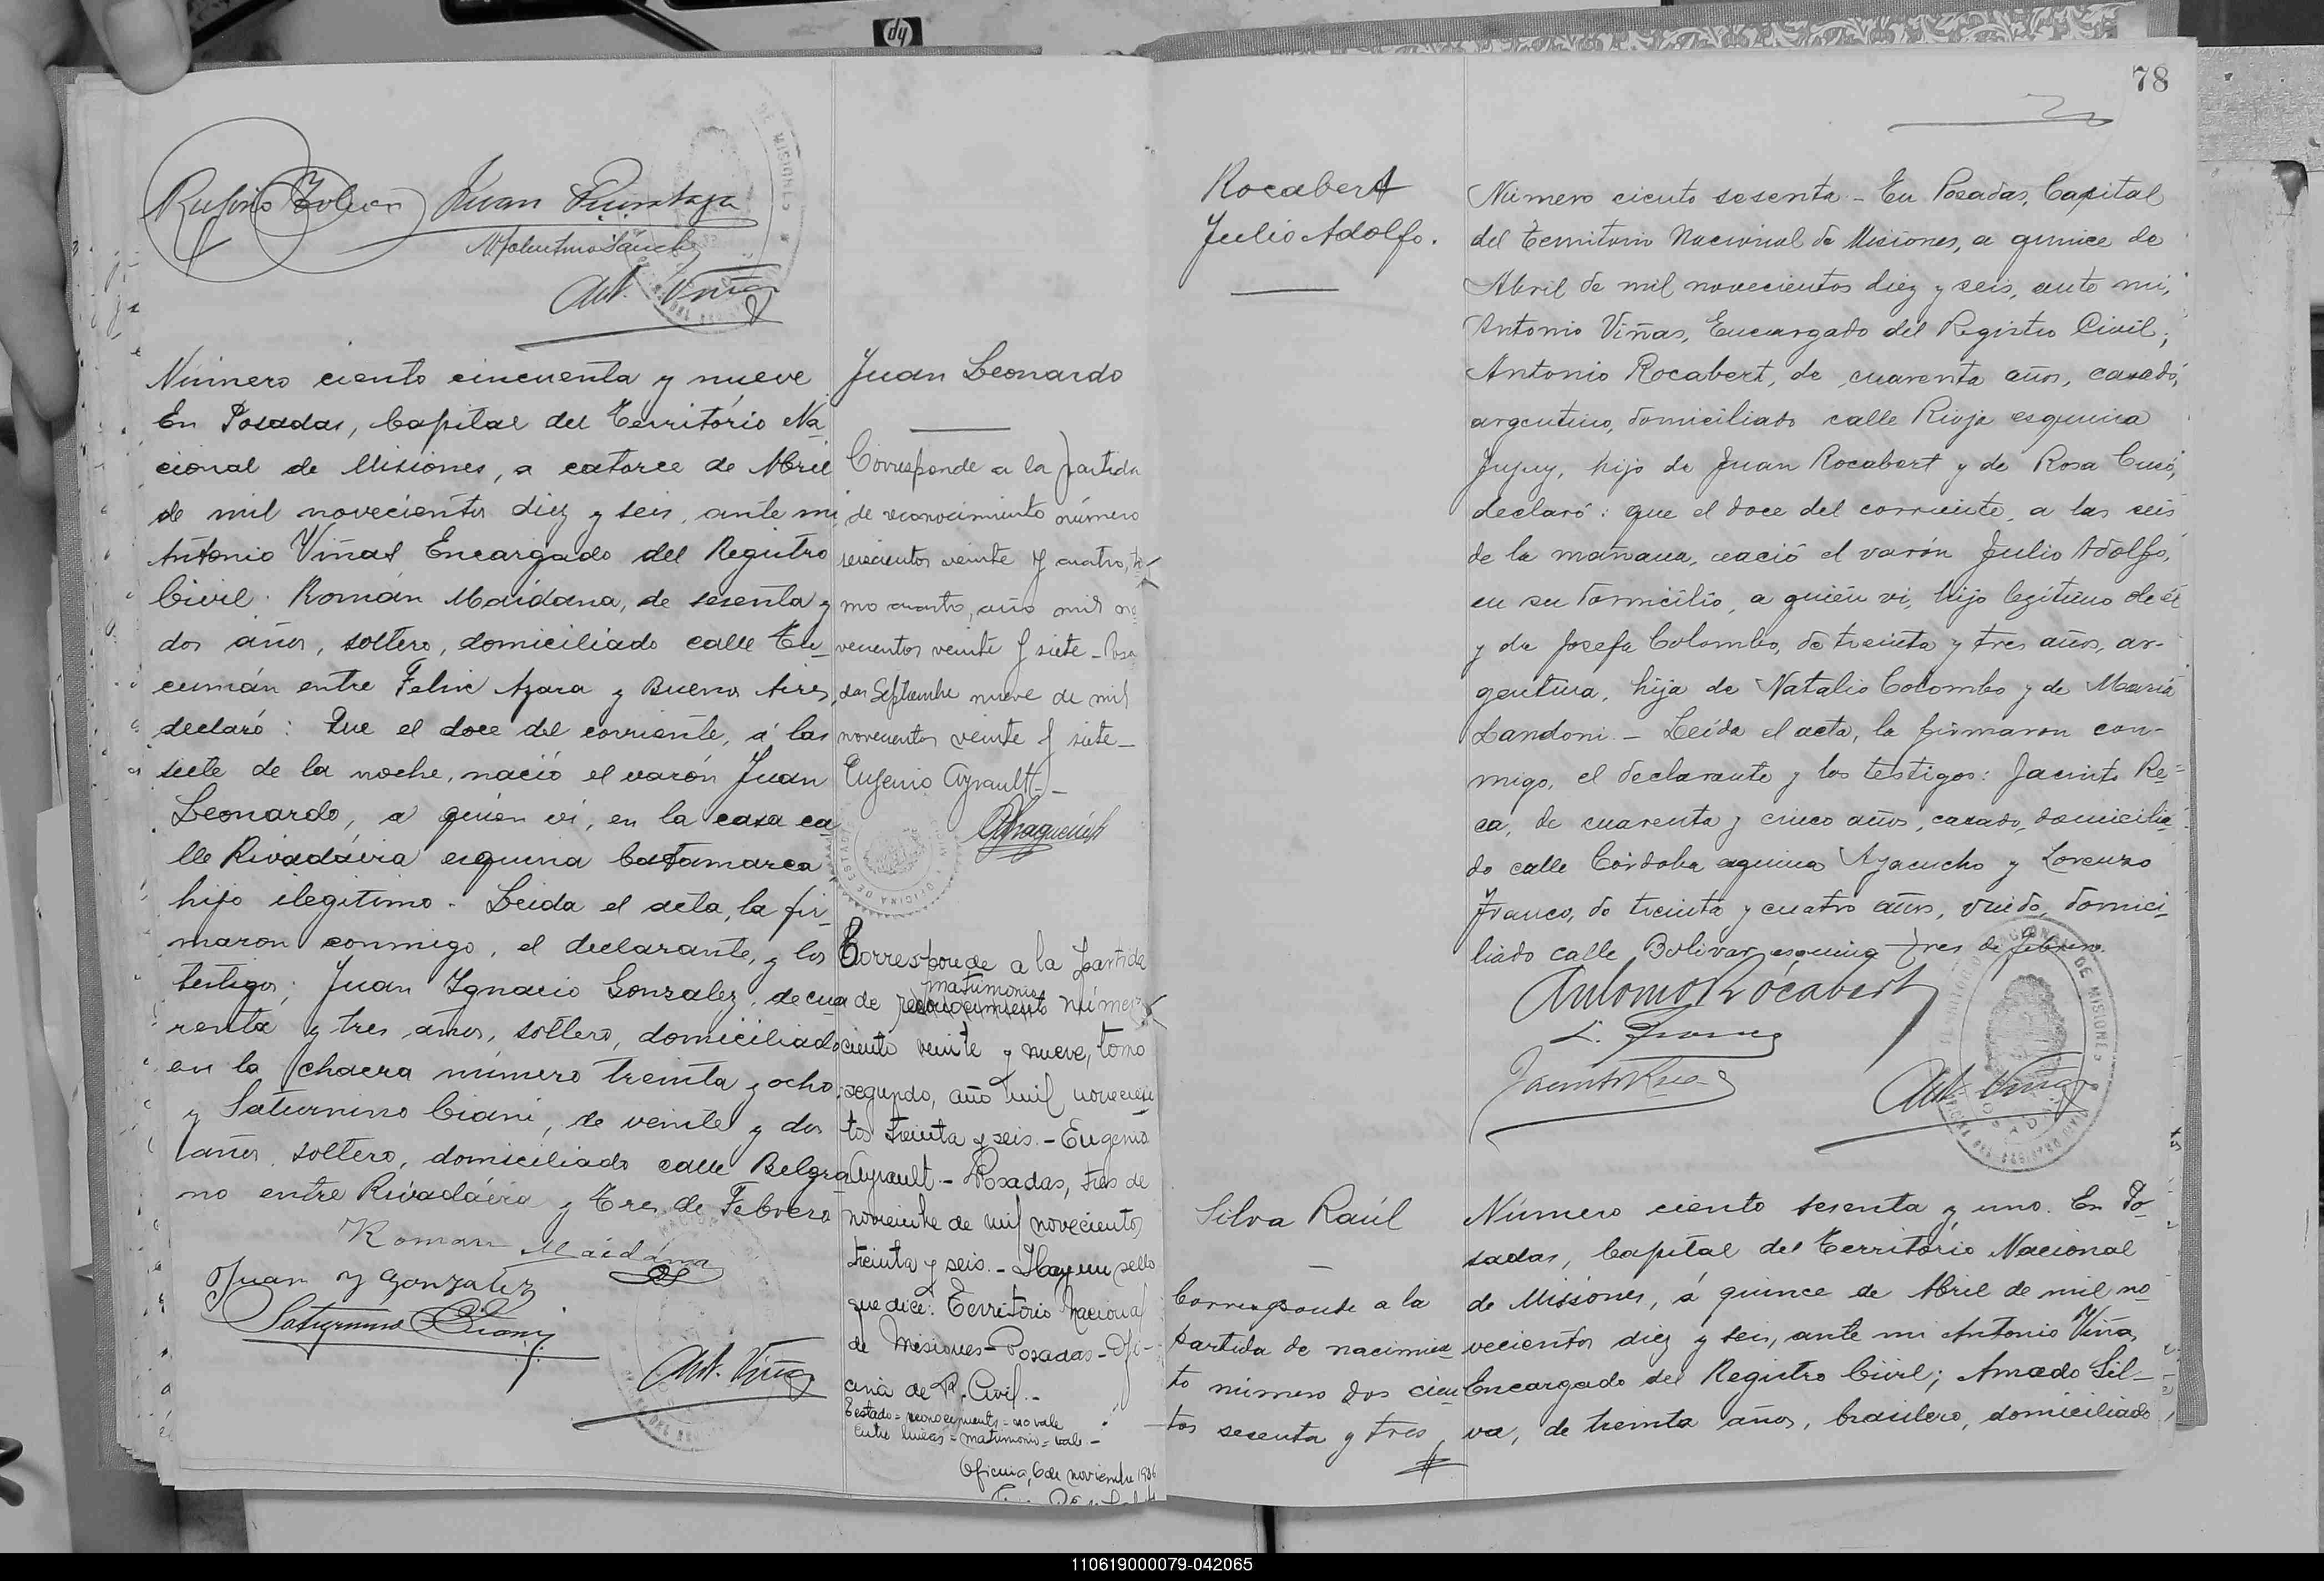 78
Juan
Ant. Viñas
Número ciento cincuenta y nueve
En Posadas, Capital del Território Na-
cional de Misiones, a catorce de Abril
de mil novecientos diez y seis, ante mi,
Antonio Viñas Encargado del Registro
Civil. Román Maidana, de sesenta y
dos años, soltero, domiciliado calle Tu-
cumán entre Felix Azara y Buenos Aires,
declaró: Que el doce del corriente, á las
siete de la noche, nació el varón Juan
Leonardo, a quien vi, en la casa ca-
lle Rivadávia esquina Catamarca,
hijo ilegitimo. Leida el acta, la fir-
maron conmigo, el declarante, y los
testigos; Juan Ignacio Gonzalez, de cua-
renta y tres años, soltero, domiciliado
en la chacra número treinta y ocho
y Saturnino Ciani, de veinte y dos
años, soltero, domiciliado calle Belgra-
no entre Rivadávia y Tres de Febrero
Roman Maidana
Juan Y Gonzalez
Saturnino Ciani
Ant. Viñas
Juan Leonardo
Corresponde a la partida
de reconocimiento número
seiscientos veinte y cuatro, to-
mo cuarto, año mil no-
vecientos veinte y siete - Posa
das Septiembre nueve de mil
novecientos veinte y siete -
Eugenio Ayrault -
Corresponde a la partida
matrimonio
de reconocimiento número
ciento veinte y nueve, tomo
segundo, año mil novecien
tos treinta y seis. - Eugenio
Ayrault. - Posadas, tres de
noviembre de mil novecientos
treinta y seis. - Hay un sello
que dice: Territorio Nacional
de Misiones - Posadas - Ofi-
cina de R. Civil. -
Testado = reconocimiento = no vale
entre lineas = matrimonio = vale -
Oficina, 6 de noviembre 1936
Rocabert
Julio Adolfo.
Número ciento sesenta - En Posadas, Capital
del Territorio Nacional de Misiones, a quince de
Abril de mil novecientos diez y seis, ante mi,
Antonio Viñas, Encargado del Registro Civil;
Antonio Rocabert, de cuarenta años, casado,
argentino, domiciliado calle Rioja esquina
Jujuy, hijo de Juan Rocabert y de Rosa Cusó,
declaró: que el doce del corriente, a las seis
de la mañana, nació el varón Julio Adolfo,
en su domicilio, a quién vi, hijo legítimo de él
y de Josefa Colombo, de treinta y tres años, ar-
gentina, hija de Natalio Colombo y de María
Landoni. - Leída el acta, la firmaron con-
migo, el declarante y los testigos: Jacinto Re-
ca, de cuarenta y cinco años, casado, domicilia-
do calle Córdoba esquina Ayacucho y Lorenzo
Franco, de treinta y cuatro años, viudo, domici-
liado calle Bolivar esquina Tres de febrero.
Antonio Rocabert
L. Franco
Jacinto Reca
Ant. Viñas
Silva Raúl
Corresponde a la
partida de nacimien
to número dos cien
tos sesenta y tres
Número ciento sesenta y uno. En Po-
sadas, Capital del Território Nacional
de Misiones, á quince de Abril de mil no-
vecientos diez y seis, ante mi Antonio Viñas,
Encargado del Registro Civil; Amado Sil-
va, de treinta años, brasilero, domiciliado
110619000079-042065